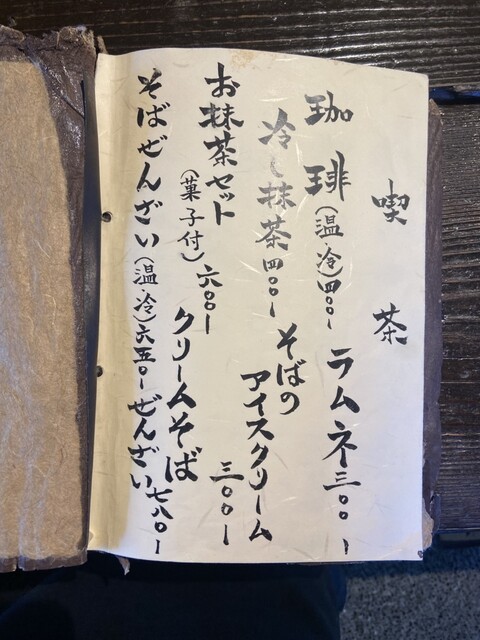 喫茶
珈琲(温・冷)四〇〇ー
ラムネ 三〇〇ー
冷し抹茶 四〇〇ー
そばの
アイスクリーム
三〇〇ー
お抹茶セット
(菓子付) 六〇〇ー
クリームそば
ぜんざい 七八〇ー
そばぜんざい(温・冷)六五〇ー